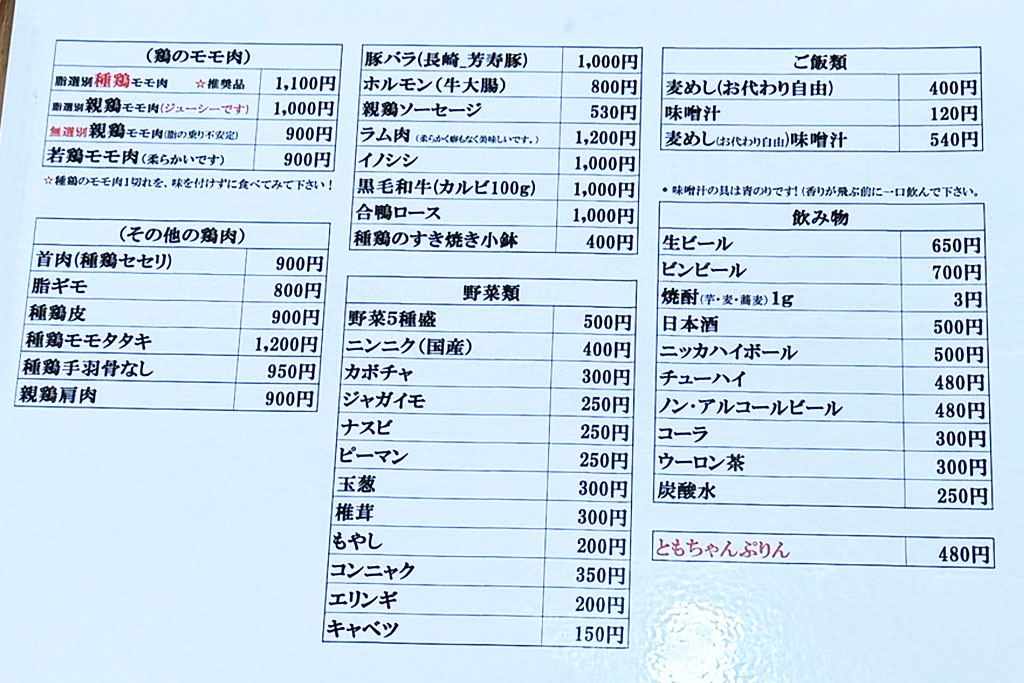 （鶏のモモ肉）
脂選別種鶏モモ肉 ☆推奨品 1,100円
脂選別親鶏モモ肉(ジューシーです) 1,000円
無選別親鶏モモ肉(脂の乗り不安定) 900円
若鶏モモ肉(柔らかいです) 900円
☆種鶏のモモ肉1切れを、味を付けずに食べてみて下さい！
（その他の鶏肉）
首肉(種鶏セセリ) 900円
脂ギモ 800円
種鶏皮 900円
種鶏モモタタキ 1,200円
種鶏手羽骨なし 950円
親鶏肩肉 900円
豚バラ(長崎_芳寿豚) 1,000円
ホルモン（牛大腸） 800円
親鶏ソーセージ 530円
ラム肉（柔らかく癖もなく美味しいです。） 1,200円
イノシシ 1,000円
黒毛和牛(カルビ100g) 1,000円
合鴨ロース 1,000円
種鶏のすき焼き小鉢 400円
野菜類
野菜5種盛 500円
ニンニク(国産） 400円
カボチャ 300円
ジャガイモ 250円
ナスビ 250円
ピーマン 250円
玉葱 300円
椎茸 300円
もやし 200円
コンニャク 350円
エリンギ 200円
キャベツ 150円
ご飯類
麦めし(お代わり自由) 400円
味噌汁 120円
麦めし(お代わり自由)味噌汁 540円
* 味噌汁の具は青のりです!（香りが飛ぶ前に一口飲んで下さい。
飲み物
生ビール 650円
ビンビール 700円
焼酎(芋・麦・蕎麦)1g 3円
日本酒 500円
ニッカハイボール 500円
チューハイ 480円
ノン・アルコールビール 480円
コーラ 300円
ウーロン茶 300円
炭酸水 250円
ともちゃんぷりん 480円